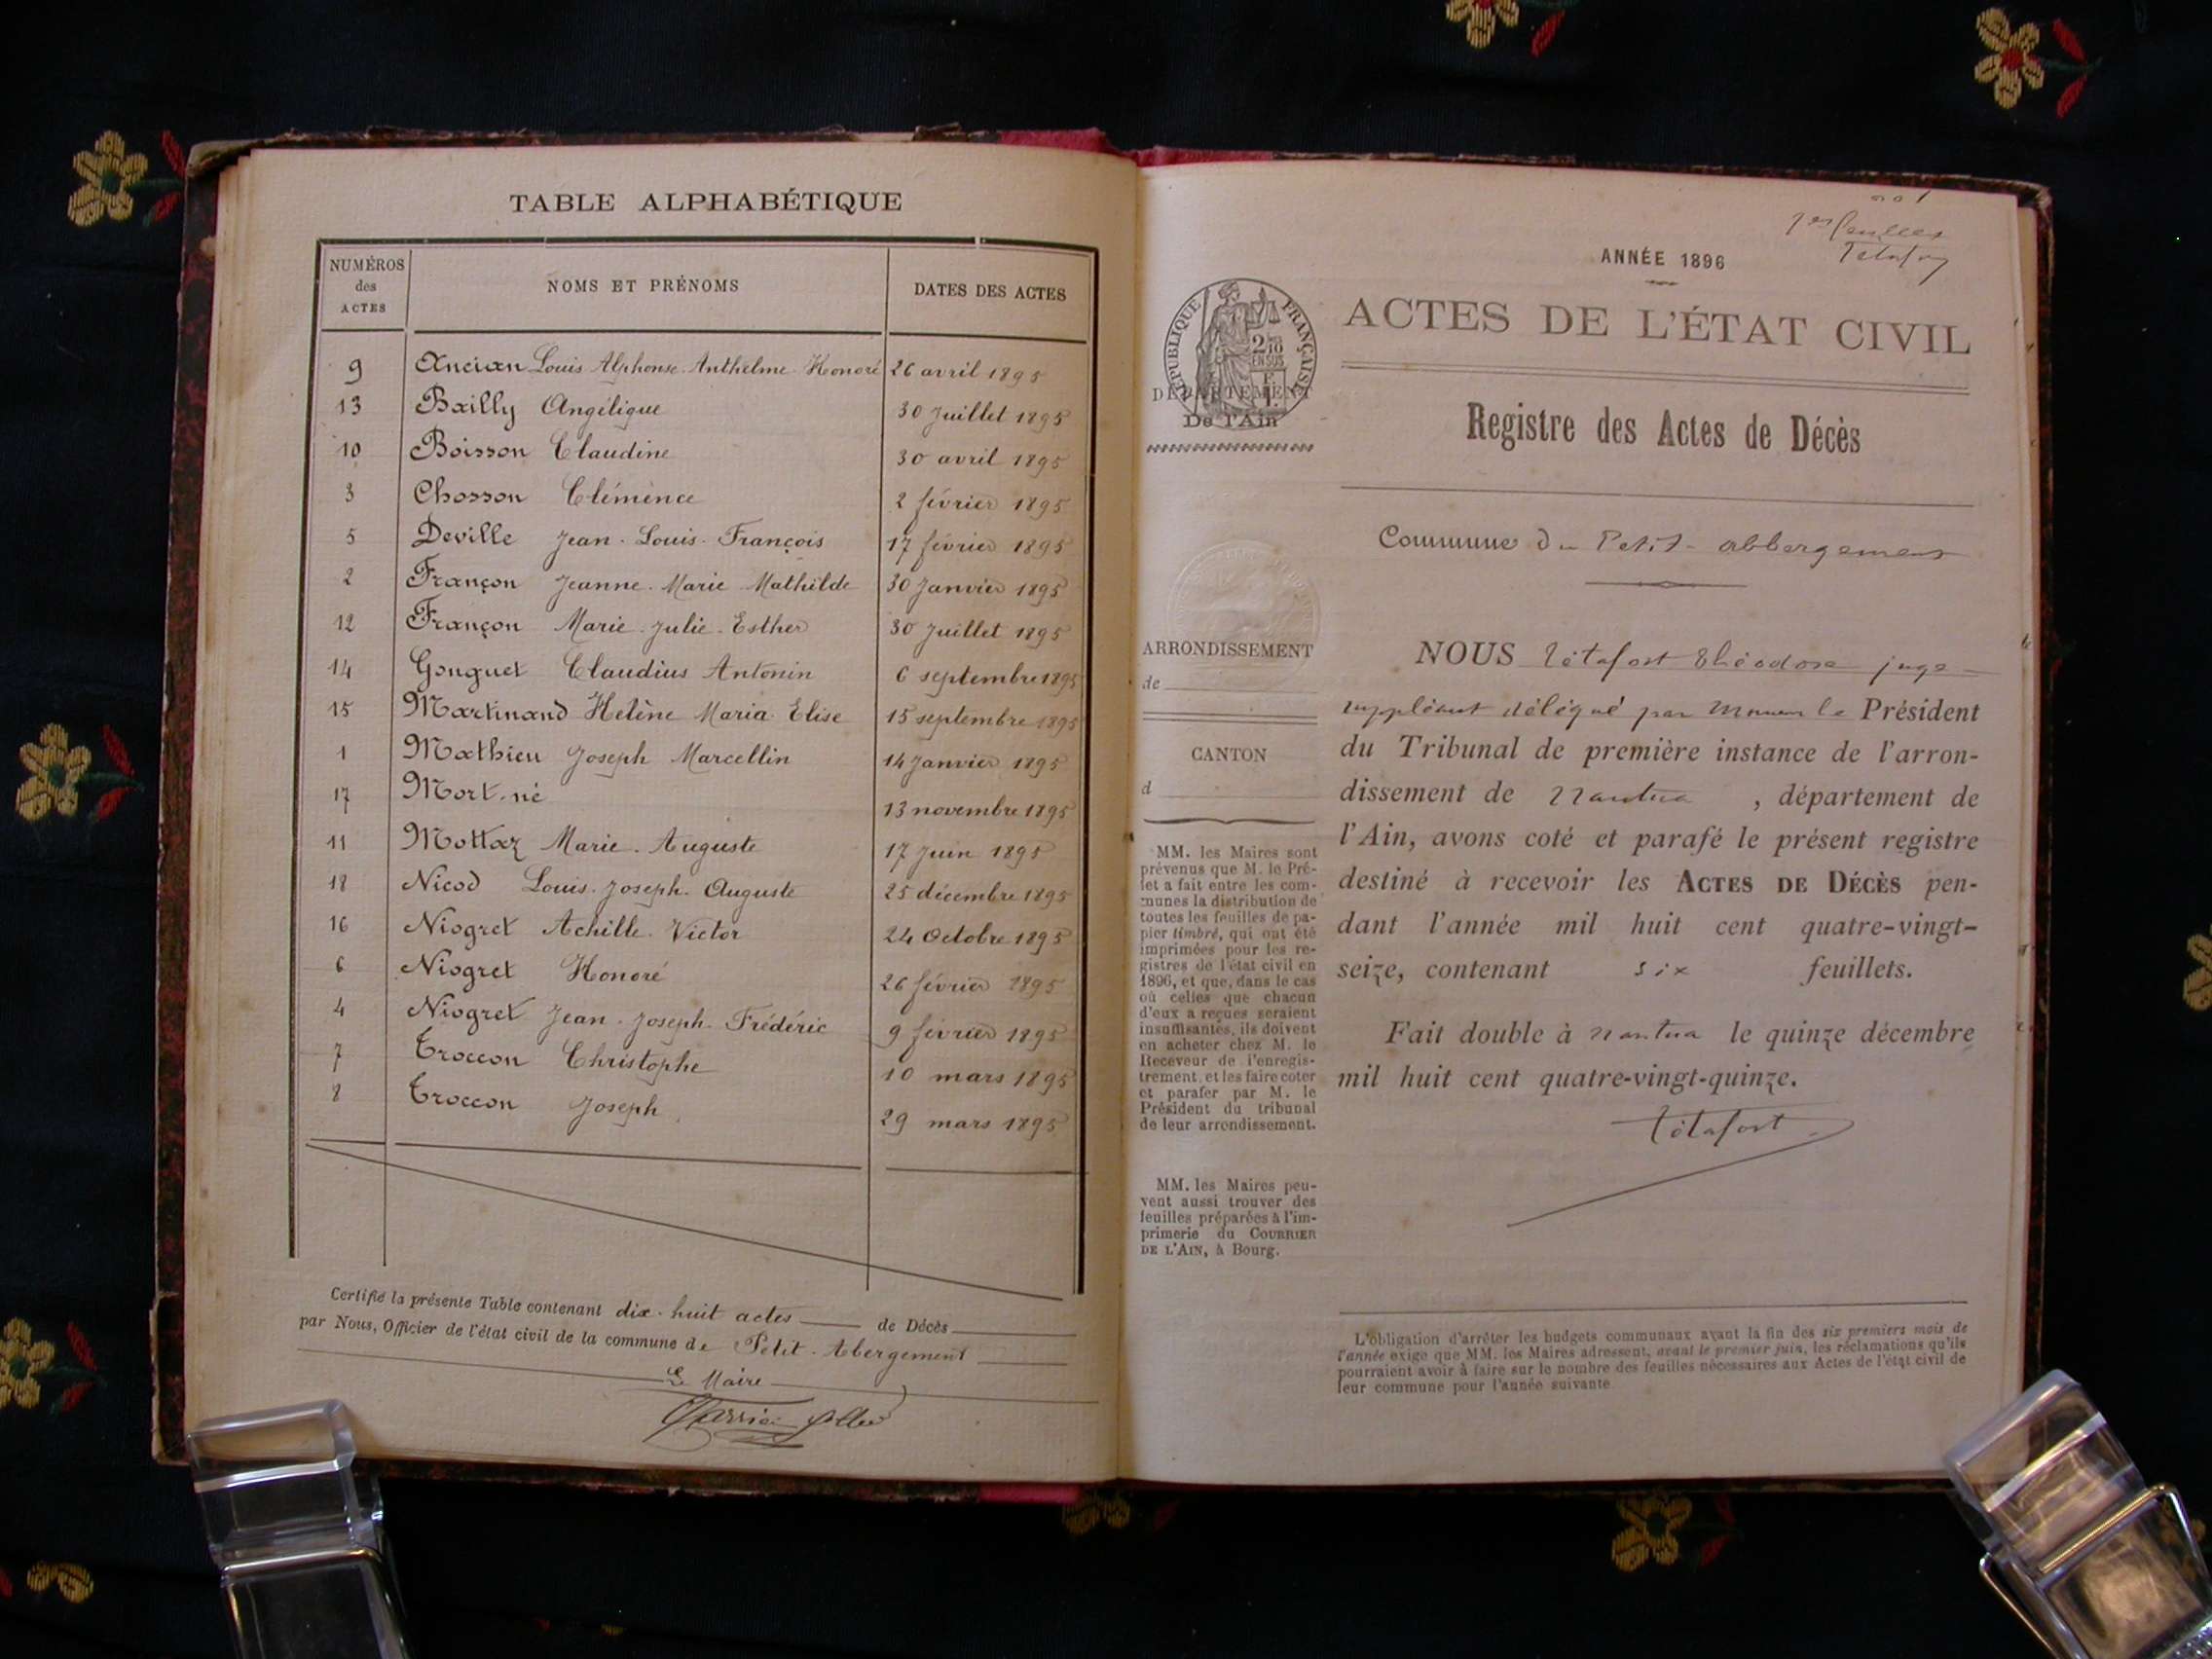 TABLE ALPHABÉTIQUE
NUMÉROS des ACTES NOMS ET PRÉNOMS DATES DES ACTES
9 Ancian Louis Alphonse Anthelme Honoré 26 avril 1895
13 Bailly Angélique 30 Juillet 1895
10 Boisson Claudine 30 avril 1895
3 Chosson Clémence 2 février 1895
5 Deville Jean-Louis-François 17 février 1895
2 Françon Jeanne-Marie Mathilde 30 Janvier 1895
12 Françon Marie-Julie-Esther 30 Juillet 1895
14 Gonguet Claudius Antonin 6 septembre 1895
15 Martinand Helène Maria Elise 15 septembre 1895
1 Mathieu Joseph Marcellin 14 Janvier 1895
17 Mort-né 13 novembre 1895
11 Mottaz Marie-Auguste 17 Juin 1895
18 Nicod Louis-Joseph-Auguste 25 décembre 1895
16 Niogret Achille-Victor 24 Octobre 1895
6 Niogret Honoré 26 février 1895
4 Niogret Jean-Joseph-Frédéric 9 février 1895
7 Troccon Christophe 10 mars 1895
8 Troccon Joseph 29 mars 1895
Certifié la présente Table contenant dix-huit actes de Décès
par Nous, Officier de l'état civil de la commune de Petit-Abergement
Le Maire
ANNÉE 1896
RÉPUBLIQUE FRANÇAISE
2/10 EN SUS
DÉPARTEMENT
De l'Ain
ACTES DE L'ÉTAT CIVIL
Registre des Actes de Décès
Commune du Petit-abbergement
ARRONDISSEMENT
de
CANTON
d
MM. les Maires sont
prévenus que M. le Pré-
fet a fait entre les com-
munes la distribution de
toutes les feuilles de pa-
pier timbré, qui ont été
imprimées pour les re-
gistres de l'état civil en
1896, et que, dans le cas
où celles que chacun
d'eux a reçues seraient
insuffisantes, ils doivent
en acheter chez M. le
Receveur de l'enregis-
trement, et les faire coter
et parafer par M. le
Président du tribunal
de leur arrondissement.
MM. les Maires peu-
vent aussi trouver des
feuilles préparées à l'im-
primerie du COURRIER
DE L'AIN, à Bourg.
NOUS Tétafort Théodore juge
suppléant délégué par le Président
du Tribunal de première instance de l'arron-
dissement de Nantua, département de
l'Ain, avons coté et parafé le présent registre
destiné à recevoir les ACTES DE DÉCÈS pen-
dant l'année mil huit cent quatre-vingt-
seize, contenant six feuillets.
Fait double à nantua le quinze décembre
mil huit cent quatre-vingt-quinze.
Tétafort
L'obligation d'arrêter les budgets communaux avant la fin des six premiers mois de
l'année exige que MM. les Maires adressent, avant le premier juin, les réclamations qu'ils
pourraient avoir à faire sur le nombre des feuilles nécessaires aux Actes de l'état civil de
leur commune pour l'année suivante